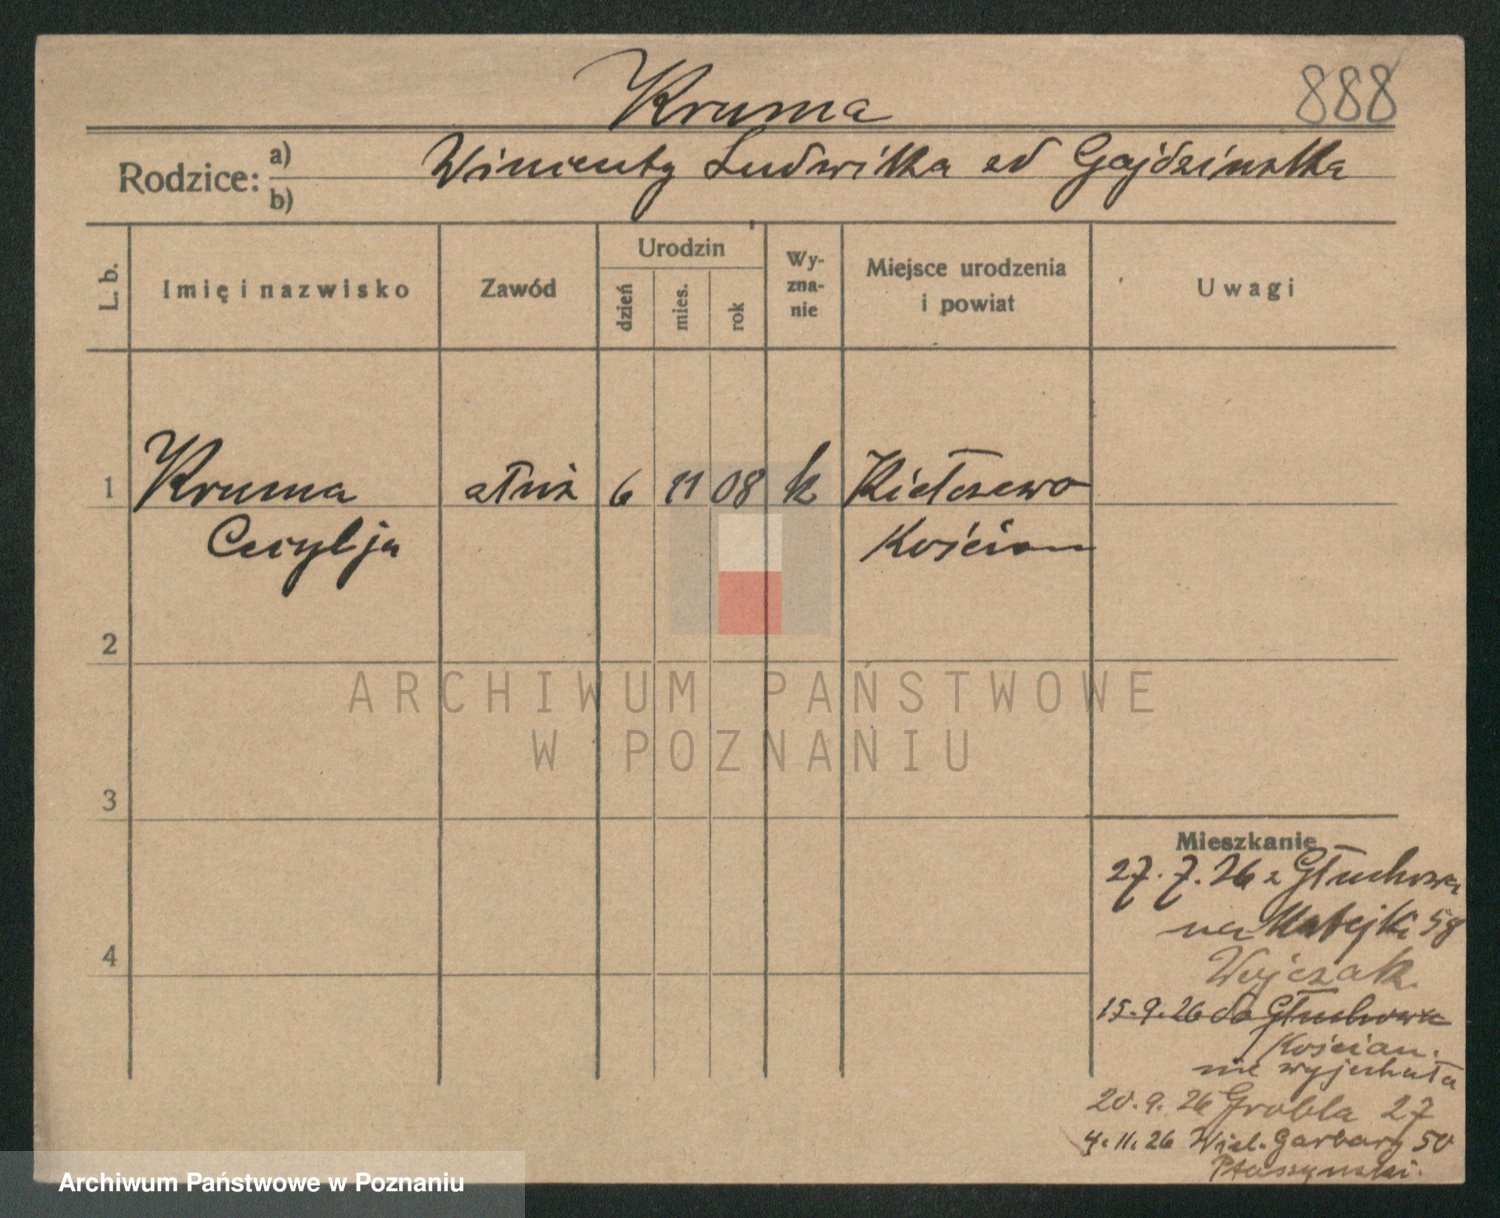 Kruma
888
Rodzice: a) Wincenty Ludwika od Gajdzinska
b)
L. b.
Imię i nazwisko
Zawód
Urodzin
dzień
mies.
rok
Wy-
zna-
nie
Miejsce urodzenia
i powiat
Uwagi
1 Kruma służ 6 11 08 k Kiełczewo
Cecylja Kościan
2
3
4
Mieszkanie
27.7.26 z Głuchowa
na Matejki 58
Wojczak.
15.9.26 do Głuchowa
Kościan.
nie wyjechała
20.9.26 Grobla 27
4.11.26 Wiel. Garbary 50
Ptaszynski.
ARCHIWUM PAŃSTWOWE
W POZNANIU
Archiwum Państwowe w Poznaniu